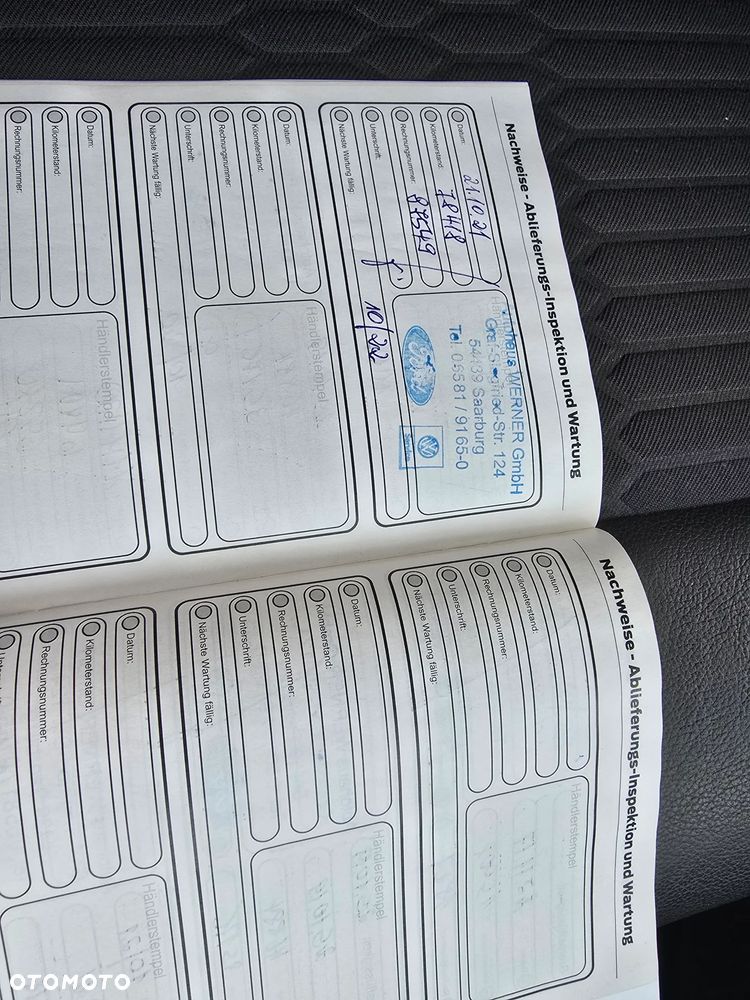 Nachweise - Ablieferungs-Inspektion und Wartung
Datum: 21.10.21
Kilometerstand: 78418
Rechnungsnummer: 87549
Unterschrift:
Nächste Wartung fällig: 10/22
WERNER GmbH
Str. 124
Saarburg
Tel. 06581 / 9165-0
Service
Datum:
Kilometerstand:
Rechnungsnummer:
Unterschrift:
Nächste Wartung fällig:
Händlerstempel
Datum:
Kilometerstand:
Rechnungsnummer:
Händlerstempel
Nachweise - Ablieferungs-Inspektion und Wartung
Datum:
Kilometerstand:
Rechnungsnummer:
Unterschrift:
Nächste Wartung fällig:
Händlerstempel
Datum:
Kilometerstand:
Rechnungsnummer:
Unterschrift:
Nächste Wartung fällig:
Händlerstempel
Datum:
Kilometerstand:
Rechnungsnummer:
Händlerstempel
OTOMOTO